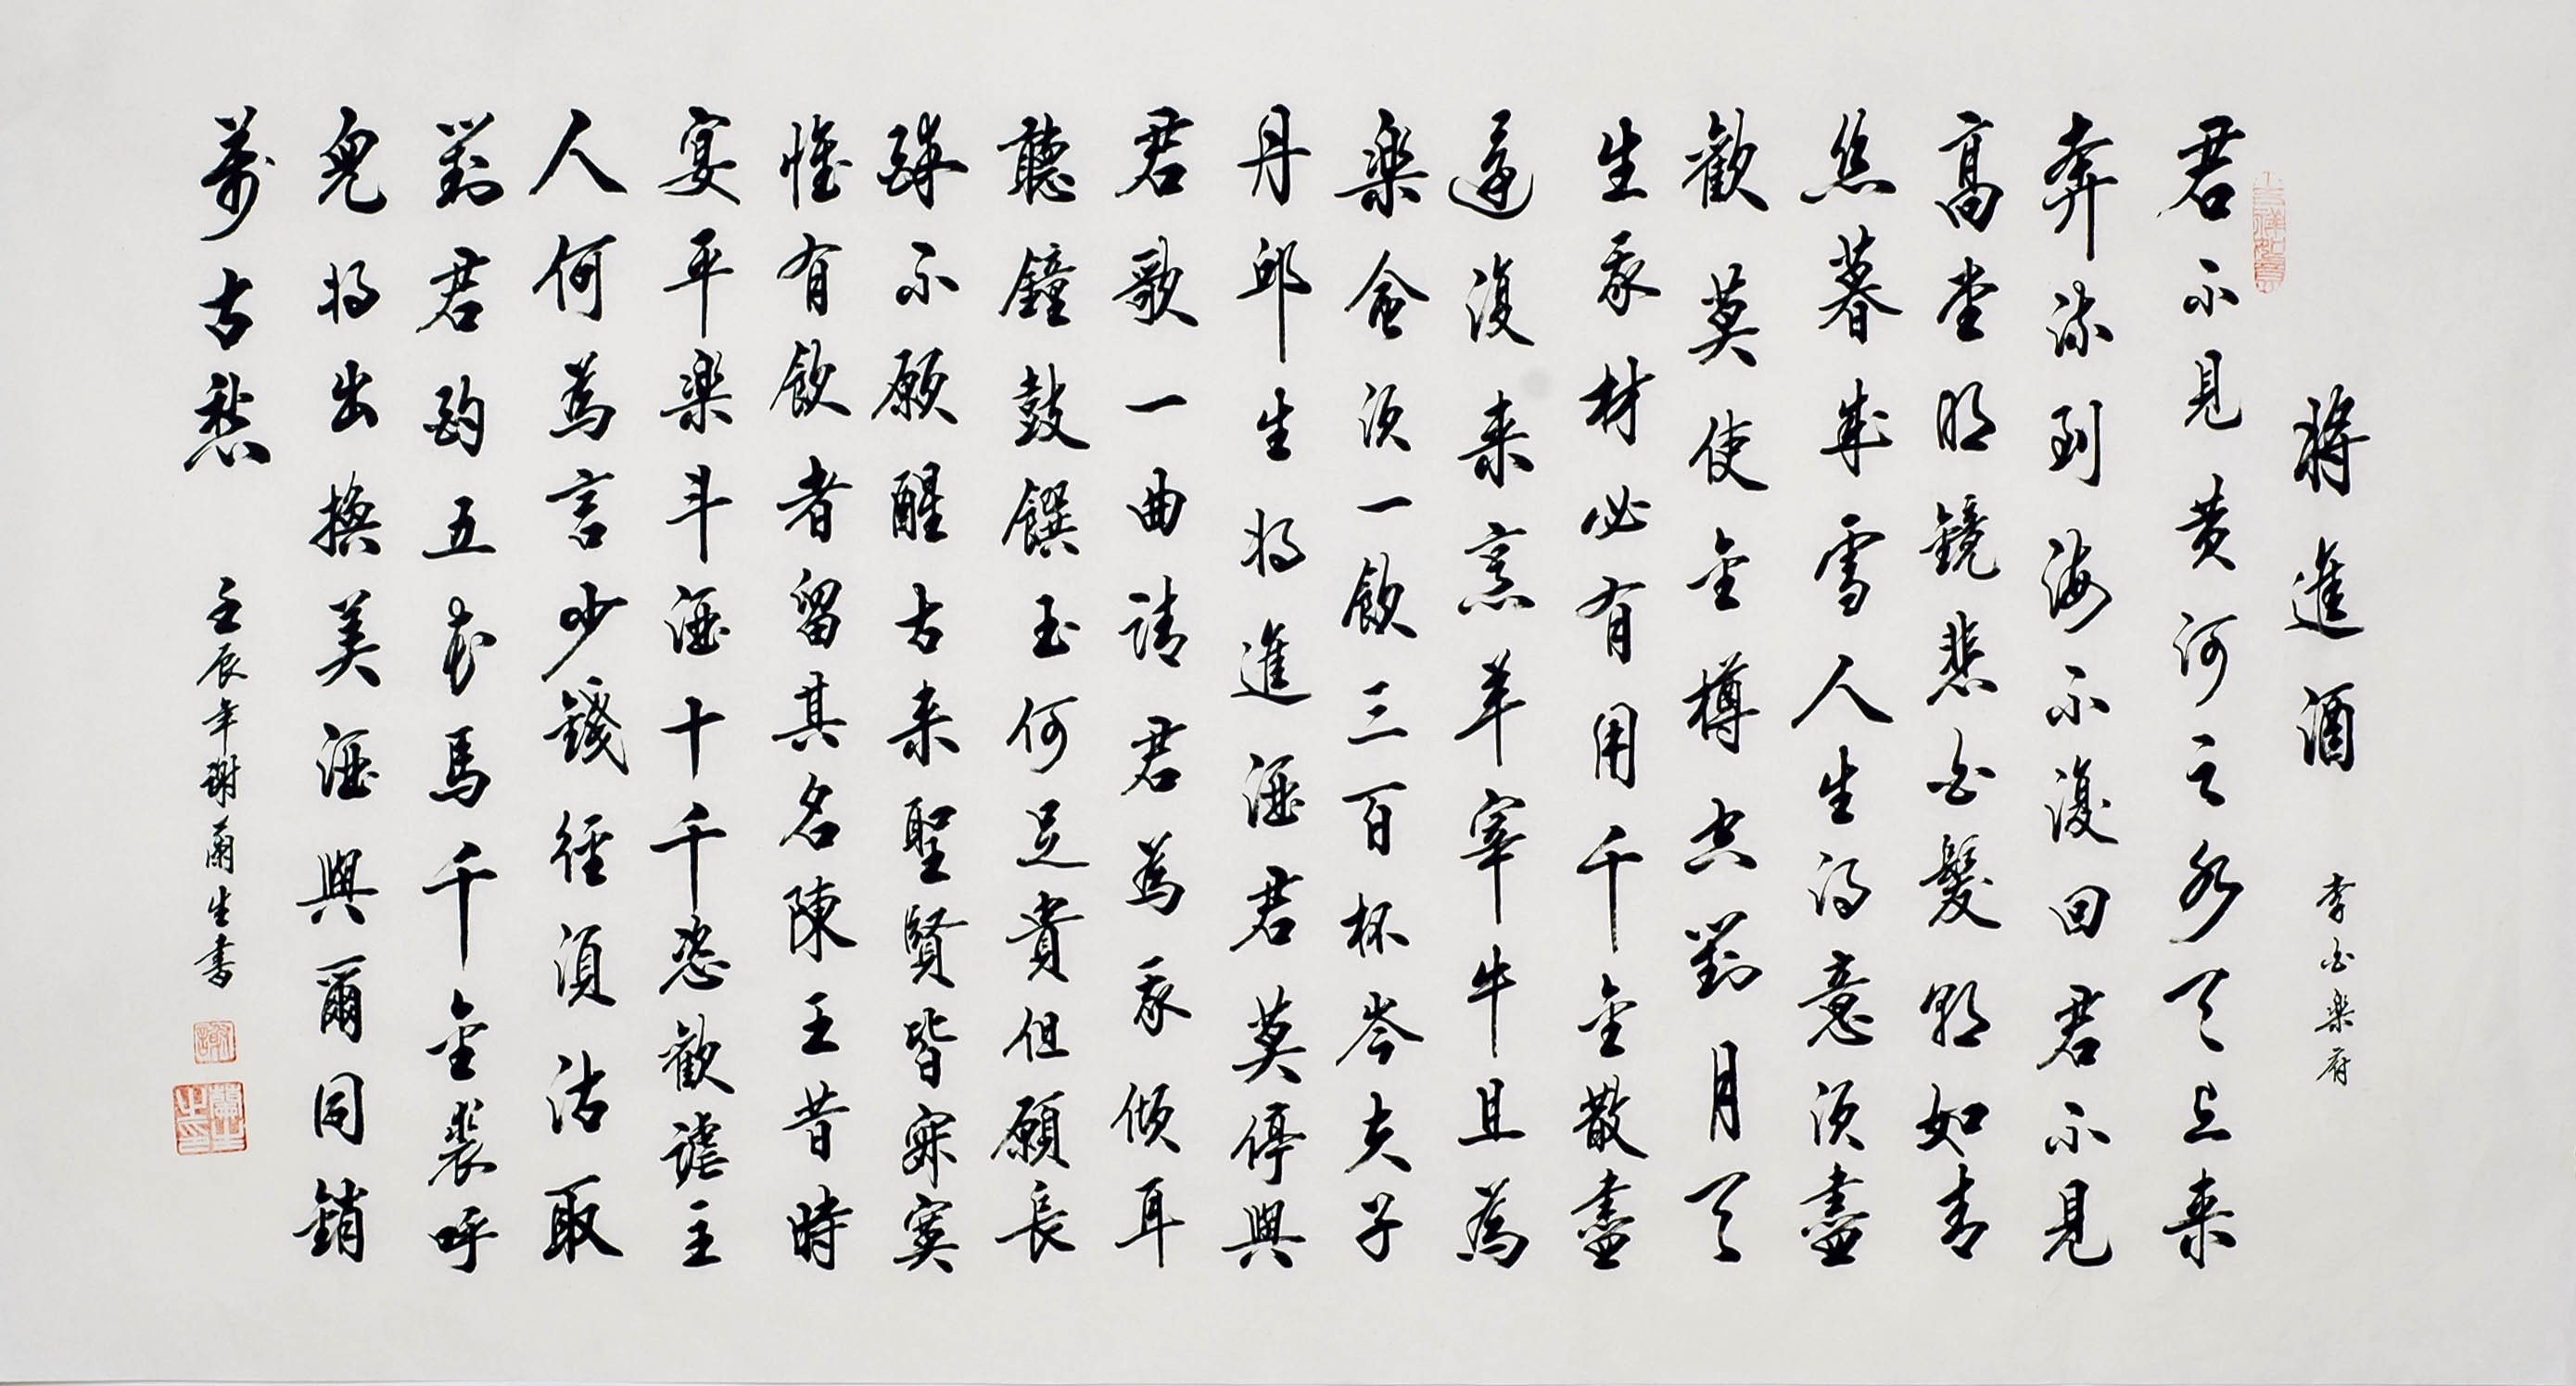 將進酒 李白樂府
君不見黄河之水天上来
奔流到海不復回君不見
高堂明鏡悲白髮朝如青
丝暮成雪人生得意须盡
歡莫使金樽空對月天
生我材必有用千金散盡
還復来烹羊宰牛且為
樂會须一飲三百杯岑夫子
丹邱生将進酒君莫停與
君歌一曲請君為我傾耳
聽鐘鼓饌玉何足貴但願長
醉不願醒古来聖賢皆寂寞
惟有飲者留其名陳王昔時
宴平樂斗酒十千恣歡謔主
人何為言少錢徑須沽取
對君酌五花馬千金裘呼
兒将出換美酒與爾同銷
萬古愁 壬辰年謝蘭生書
謝